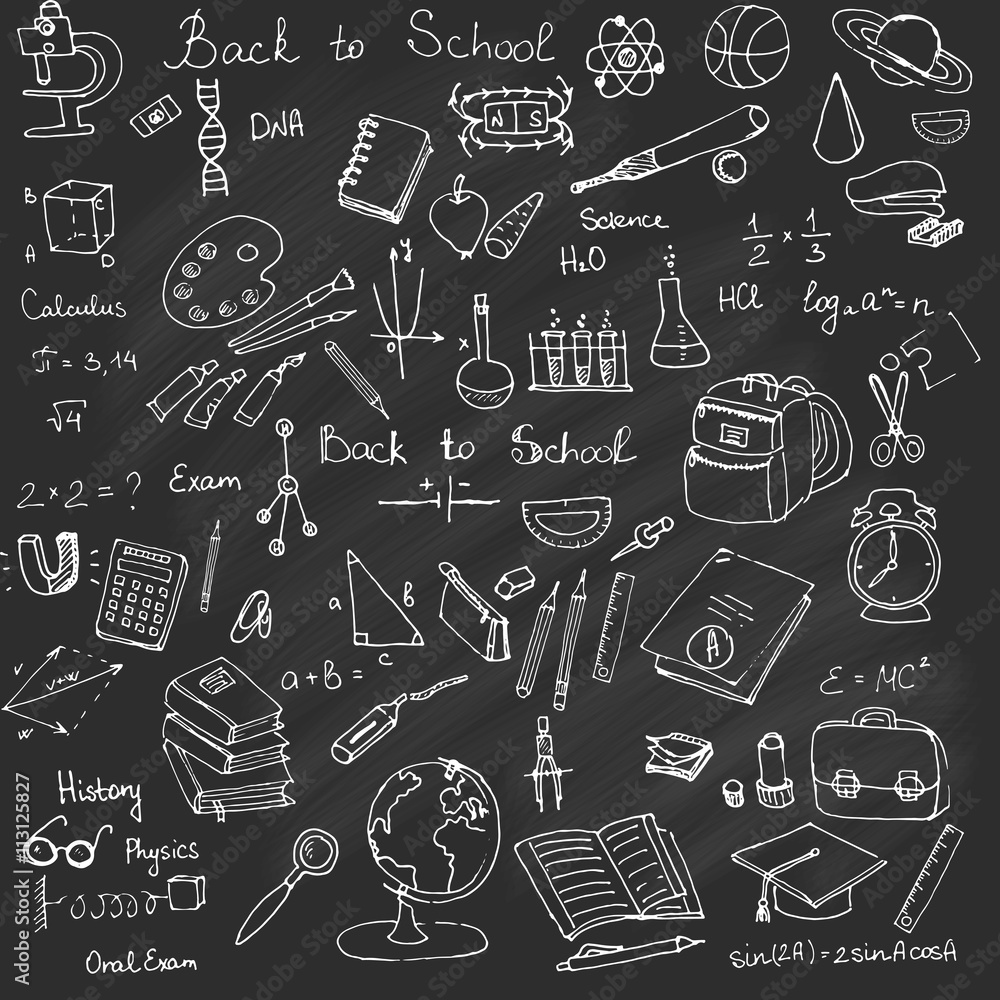 Back to School
DNA
N S
B
C
A
D
Science
H2O
1/2 × 1/3
HCl
logₐaⁿ = n
Calculus
π = 3,14
√4
y
0
x
Back to School
+ -
2 × 2 = ?
Exam
H
C
H
H
H
a
b
c
a + b =
A
E = MC²
v
v+w
w
History
Physics
Oral Exam
sin(2A) = 2sinAcosA
Adobe Stock | #113125827